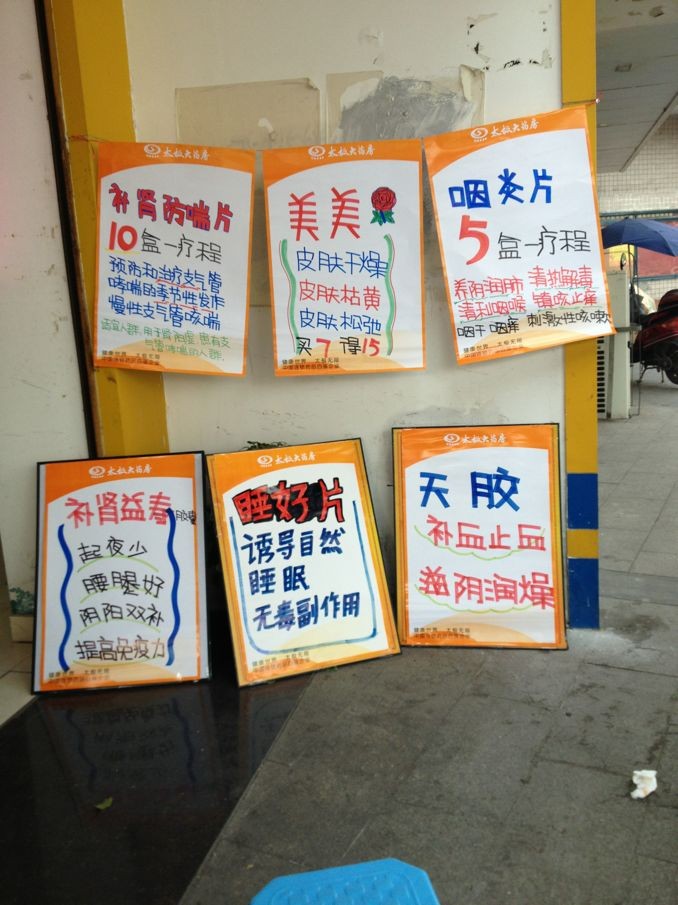 太极大药房
补肾防喘片
10盒一疗程
预防和治疗支气管
哮喘的季节性发作
慢性支气管咳喘
适宜人群:用于肾阳虚,患有支
气管哮喘的人群.
健康世界 太极无限
太极大药房
美美
皮肤干燥
皮肤枯黄
皮肤松弛
买7得15
健康世界 太极无限
太极大药房
咽炎片
5盒一疗程
养阴润肺 清热解毒
清利咽喉 镇咳止痒
咽干 咽痒 刺激性咳嗽
健康世界 太极无限
太极大药房
补肾益寿胶囊
起夜少
腰腿好
阴阳双补
提高免疫力
健康世界 太极无限
太极大药房
睡好片
诱导自然
睡眠
无毒副作用
健康世界 太极无限
太极大药房
天胶
补血止血
滋阴润燥
健康世界 太极无限